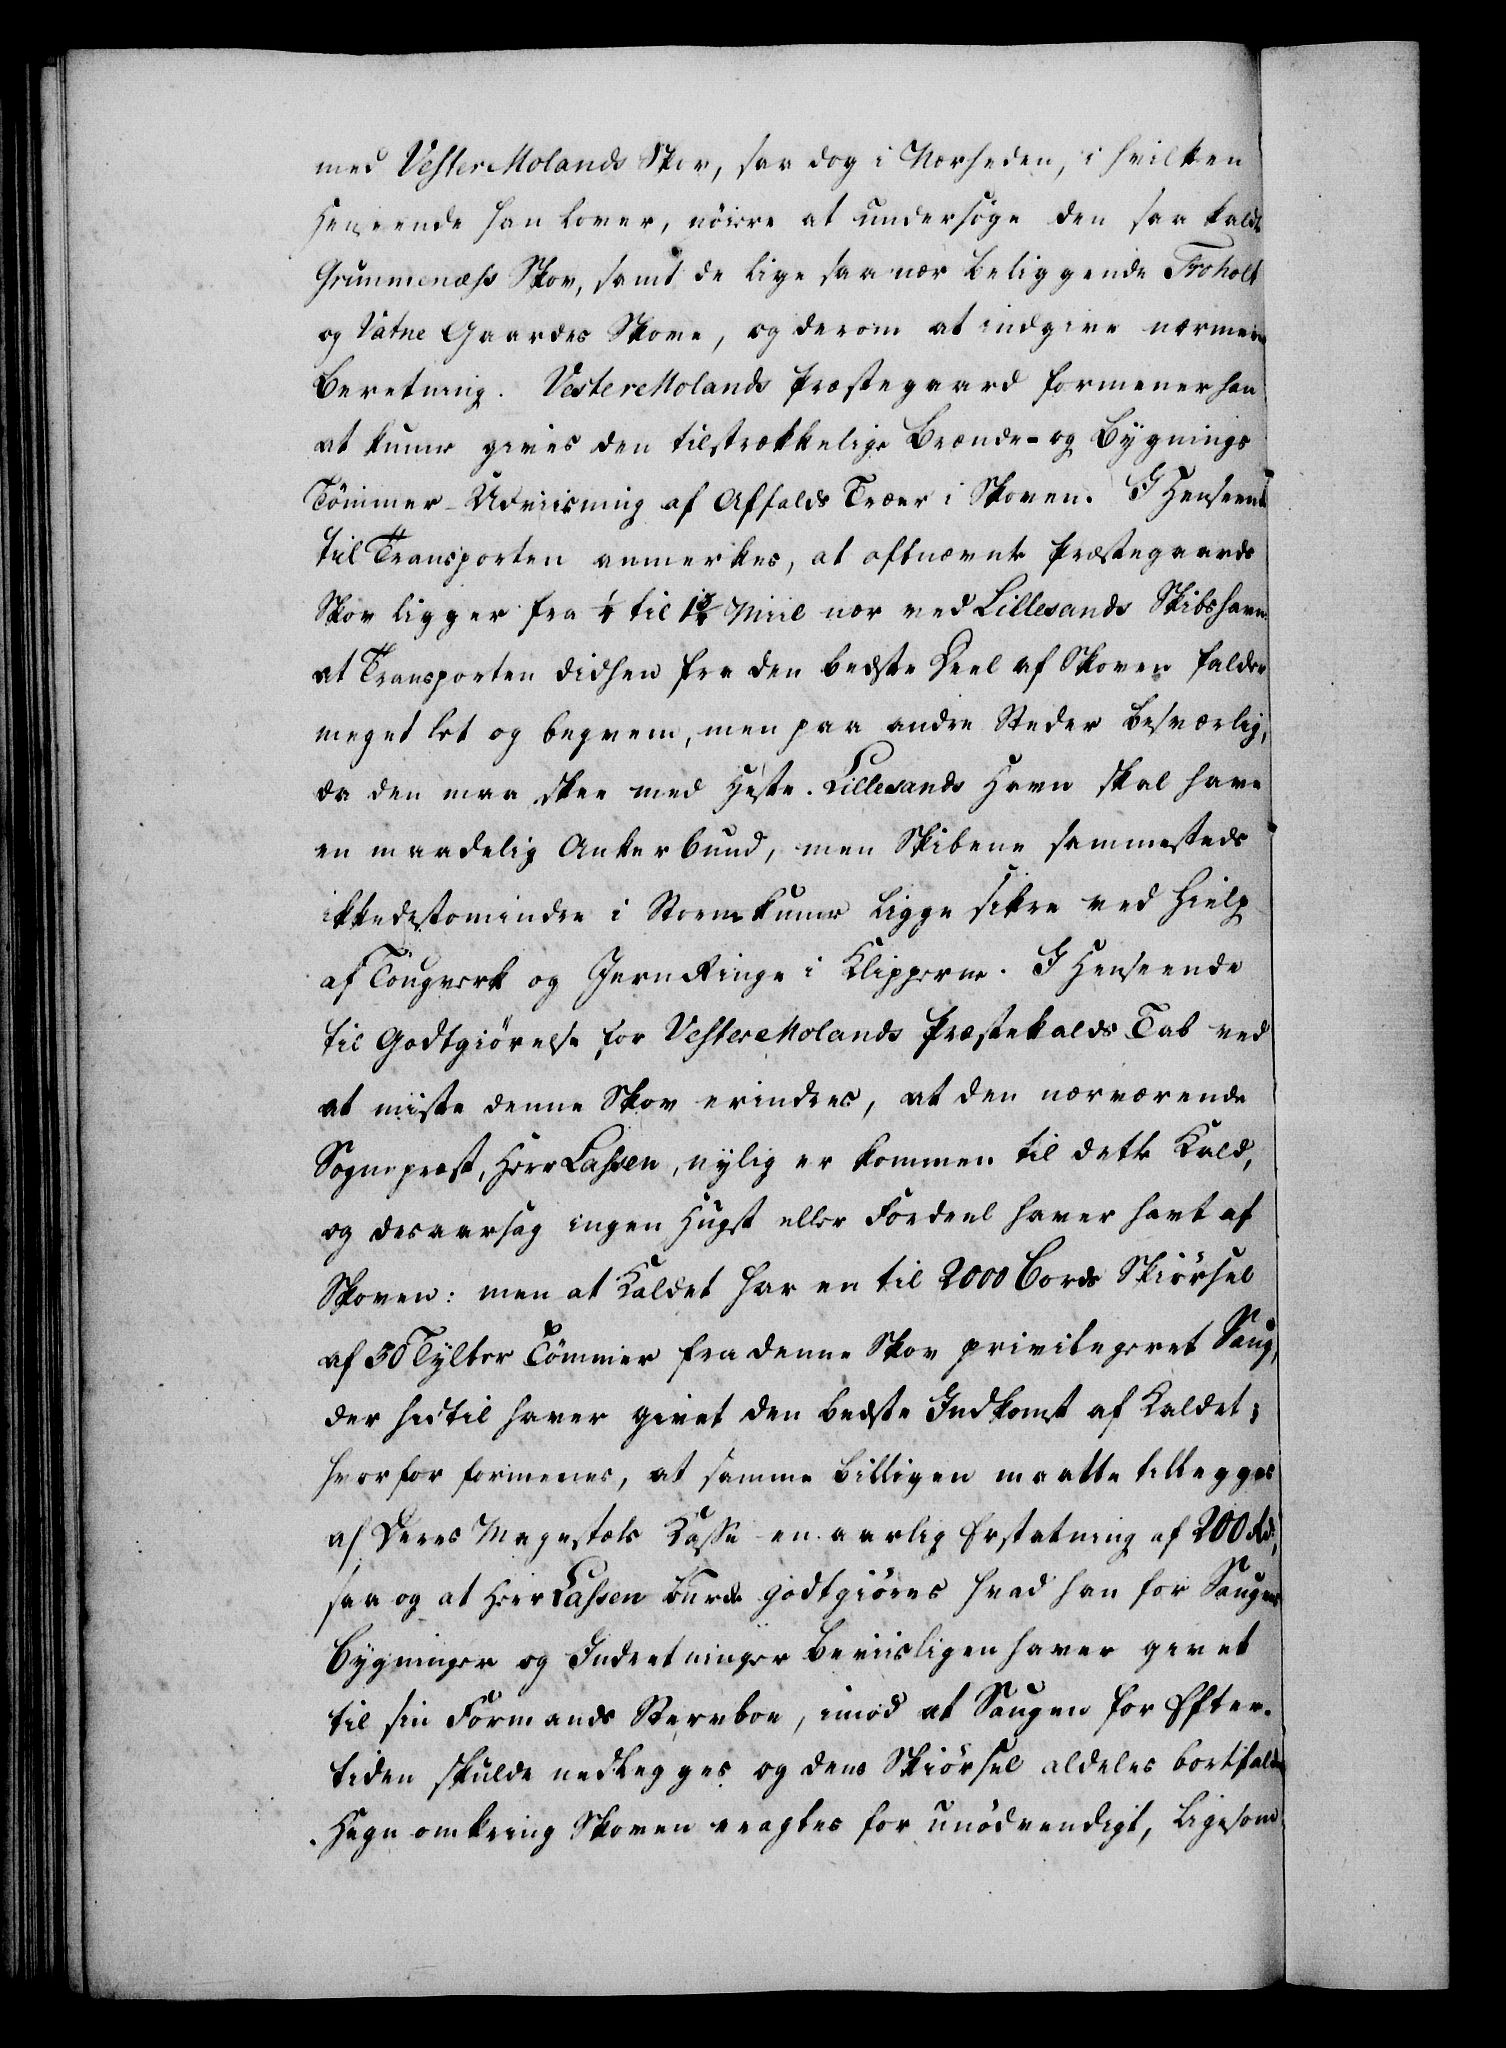 med Vester Molands Skov, saa dog i Nærheden, i hvilken
Henseende han lover, nöiere at undersöge den saa kaldte
Grummenæss Skov, samt de lige saa nær beliggende Troholt
og Vatne Gaardes Skove, og derom at indgive nærmere
Beretning. Vester Molands Præstegaard formener han
at kunne gives den tilstrækkelige Brænde- og Bygnings
Tömmer-Udviisning af Affalds Træer i Skoven. I Henseende
til Transporten anmerkes, at oftnævnte Præstegaards
Skov ligger fra 1/4 til 1 3/4 Miil nær ved Lillesands Skibshavn,
at Transporten didhen fra den bedste Deel af Skoven falder
meget let og beqvem, men paa andre Steder besværlig,
da den maa skee med Heste. Lillesands Havn skal have
en maadelig Ankerbund, men Skibene sammesteds
ikkedestomindre i Storm kunne ligge sikre ved Hielp
af Tougverk og Jern Ringe i Klipperne. I Henseende
til Godtgiörelse for Vester Molands Præstekalds Tab ved
at miste denne Skov erindres, at den nærværende
Sognepræst, Herr Lassen, nylig er kommen til dette Kald,
og desaarsag ingen Hugst eller Fordeel haver havt af
Skoven: men at Kaldet har en til 2000 Bords Skiörsel
af 50 Tylter Tömmer fra denne Skov privilegeret Saug,
der hidtil haver givet den bedste Indkomst af Kaldet;
hvorfor formenes, at samme billigen maatte tillegges
af Deres Majestæts Kasse en aarlig Erstatning af 200 Rd,
saa og at Herr Lassen burde godtgiöres hvad han for Saugens
Bygninger og Indretninger beviisligen haver givet
til sin Formands Stervboe, imod at Saugen for Efter-
tiden skulde nedlegges og dens Skiörsel aldeles bortfalde
Hegn omkring Skoven eragtes for unödvendigt, ligesom